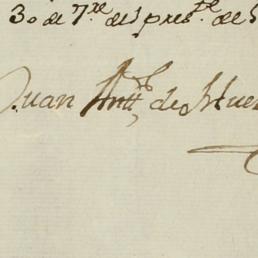 30 de 7.re del pres.te de
Juan Antt.o de Hue